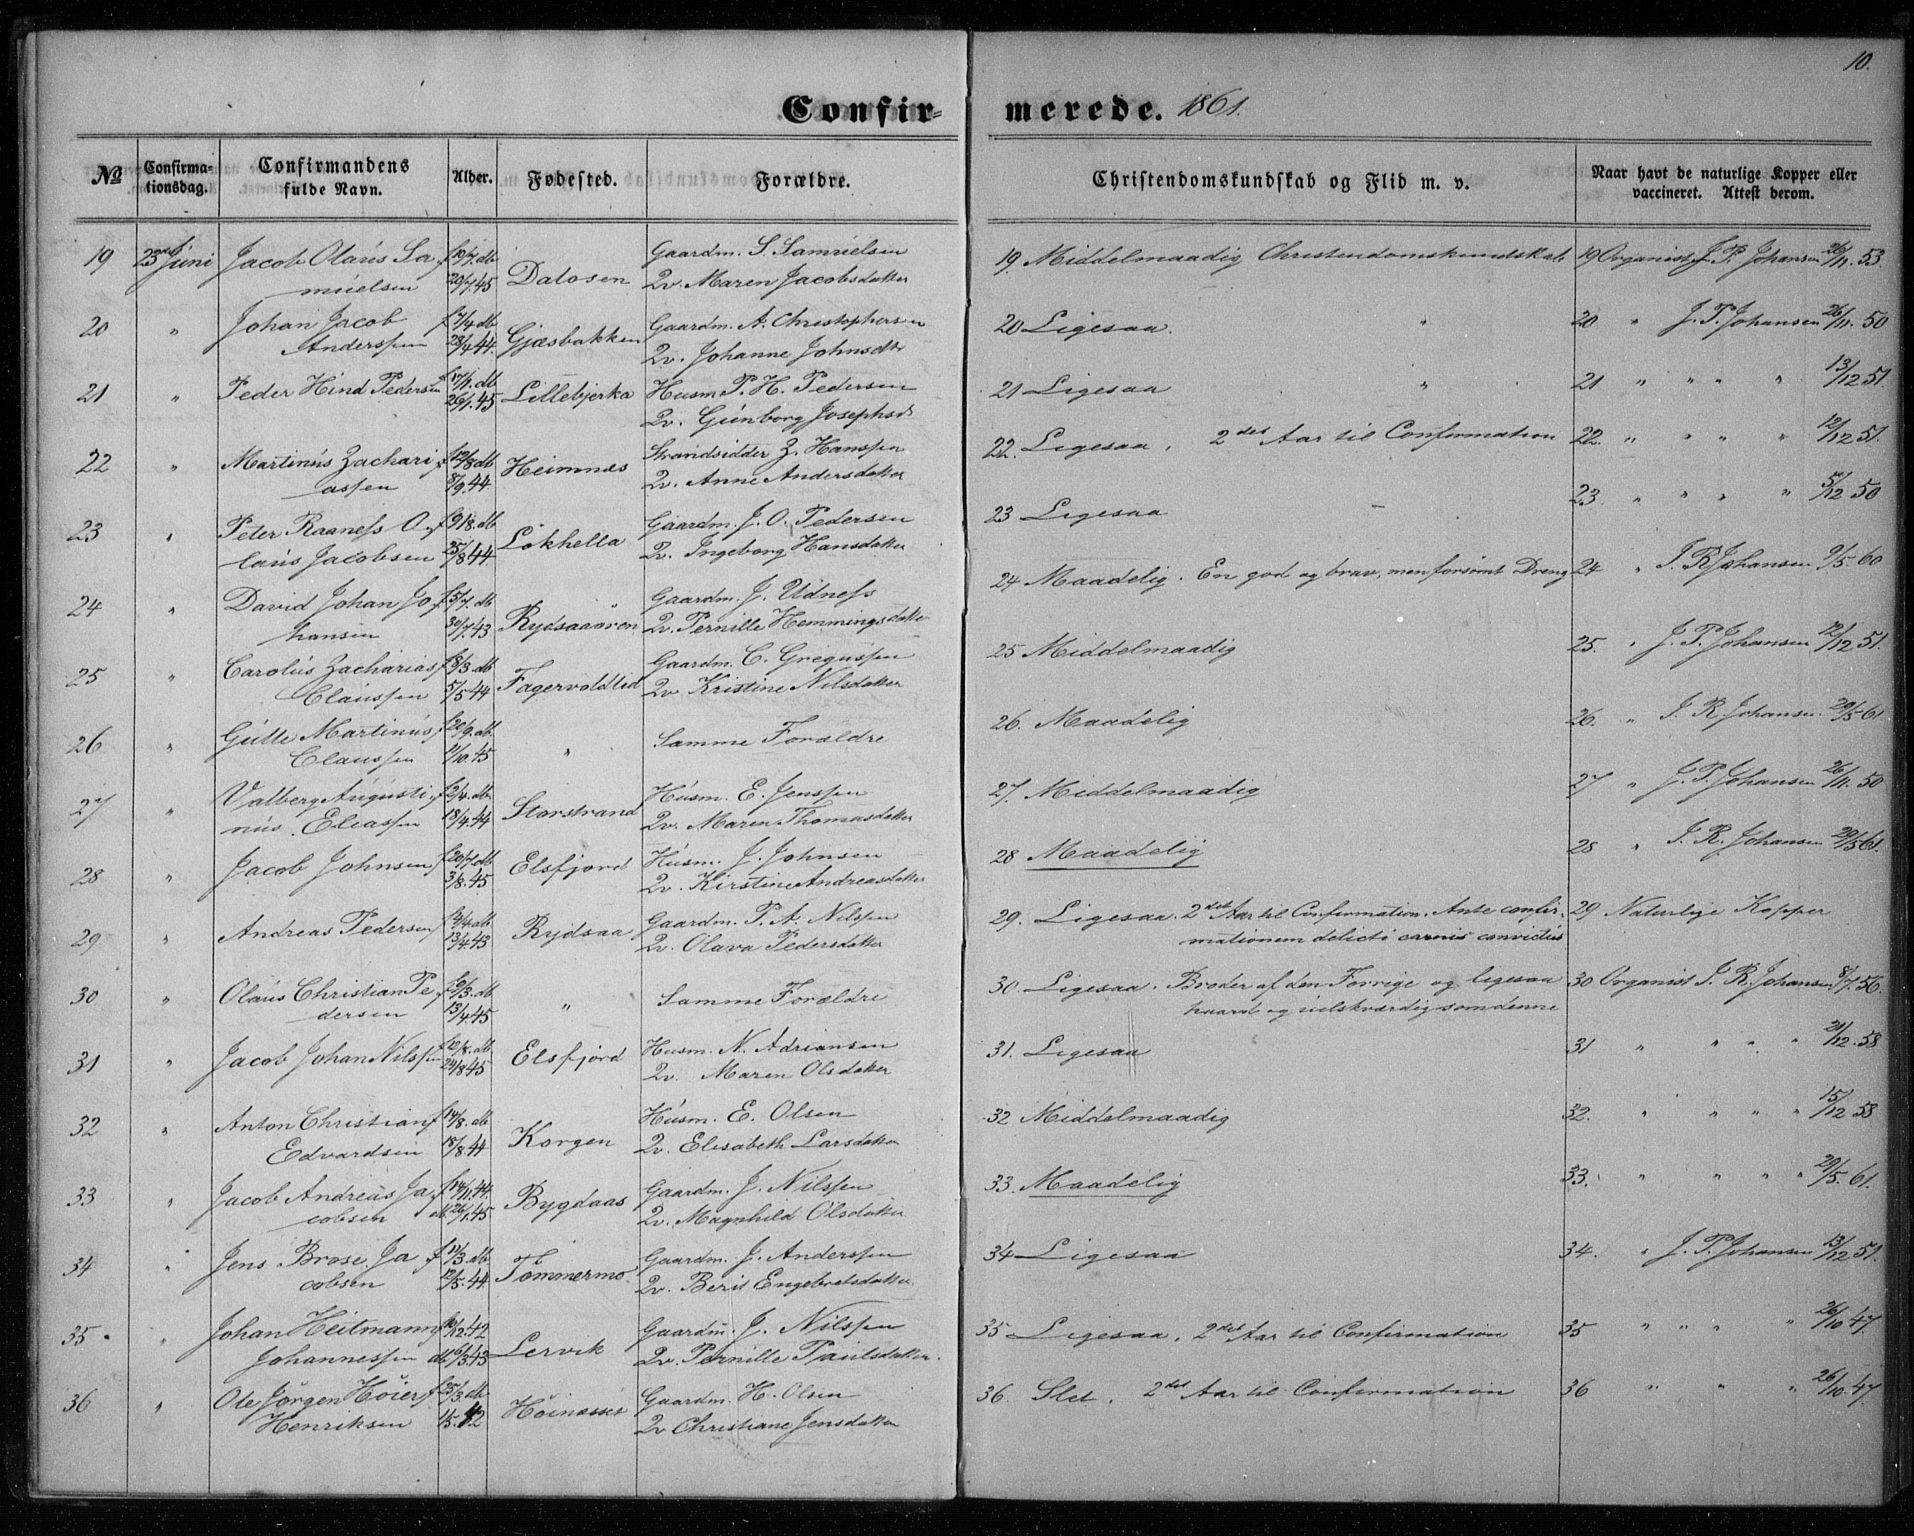 10.
Confir-
merede. 1861.
No
Confirma-
tionsdag.
Confirmandens
fulde Navn.
Alder.
Fødested.
Forældre.
Christendomskundskab og Flid m. v.
Naar havt de naturlige Kopper eller
vaccineret. Attest derom.
19 23de Juni Jacob Olaus Sa- f 10/7. db Gaardm. S. Samuelsen
muelsen 20/7.45 Dalosen Qv. Maren Jacobsdatter
19. Middelmaadig Christendomskundskab 19 Organist J. P. Johansen 26/11.53.
20 " Johan Jacob f 7/4 db Gaardm. A. Christophersen
Anderssen 28/4 44. Gjæsbakken Qv. Johanne Johnsdtr
20 Ligesaa. " 20 " J. P. Johansen 26/11.50
21 " Peder Hind Pedersen f 17/1. db Lillebjerka Husm P. H. Pedersen
26/1.45 Qv. Gunborg Josephsd
21 Ligesaa " 21 " " " " 13/12 51.
22 " Martinus Zachari- f 12/8 db Heimnes Strandsidder Z. Hanssen
assen 8/9.44. Qv. Anne Andersdatter
22. Ligesaa. 2det Aar til Confirmation 22. " " " " 12/12 51.
23 " Peter Raaness O- f 9/8. db Gaardm. J. O. Pedersen
laus Jacobsen 25/8 44 Løkhella Qv. Ingeborg Hansdatter
23 Ligesaa 23 " " " " 5/12 50
24 " David Johan Jo- f 5/7. db Gaardm. J. Udness
hansen 30/7.43 Rydsaaøren Qv. Pernille Hemmingsdatter
24 Maadelig. En god og brav, men forsømt Dreng 24 " J. R. Johansen 9/5 60
25 " Carolus Zacharias f 8/3. db Gaardm. C. Gregussen
Claussen 5/5 44 Fagervoldlid Qv Kristine Nilsdatter
25 Middelmaadig 25. " J. P. Johansen 12/12 51.
26 " Gulle Martinus f 20/9. db
Claussen 10.45 " Samme Forældre
26. Maadelig 26. " J. R. Johansen 29/5 61
27 " Valberg Augusti- f 2/4. db Storstrand Husm. E. Jenssen
nus Eliassen 18/4.44 Qv. Maren Thomasdatter
27. Middelmaadig 27 " J. P. Johansen 26/11.50
28 " Jacob Johnsen f 20/7. db Elsfjord Husm. J. Johnsen
3/8.45 Qv. Kirstine Andreasdatter
28 Maadelig 28 " J. R. Johansen 29/5 61.
29 " Andreas Pedersen Rydsaa Gaardm. P. A. Nilssen
13/4.43 Qv. Olava Pedersdatter
29. Ligesaa. 2det Aar til Confirmation. Ante confir-
mationem delicti carnis convictus
29 Naturlige Kopper
30 " Olaus Christian Pe- " Samme Forældre
dersen 13/4.45
30. Ligesaa. Broder af den Forrige og ligesaa
haard og uelskværdig som denne
30 Organist J. R. Johansen 8/7.56.
31 " Jacob Johan Nilssen f 12/8. db Elsfjord Husm. N. Adriansen
24/8 45 Qv. Maren Olsdatter
31. Ligesaa 31 " " " " 21/12.58
32 " Anton Christian f 14/8. db Husm. E. Olsen
Edvardsen 18/8.44 Korgen Qv. Elisabeth Larsdatter
32 Middelmaadig 32. " " " " 15/12 58
33 " Jacob Andreas Ja- f 14/11.44. Gaardm. J. Nilssen
cobsen db 26/1.45 Bygdaas Qv. Magnhild Olsdatter
33. Maadelig 33. " " " " 29/5.61.
34 " Jens Brose Ja- f 17/3. db Gaardm. J. Anderssen
cobsen 12/5.44 Tømmermo Qv. Berit Engebretsdatter
34 Ligesaa 34. " J. P. Johansen 13/12.51.
35 " Johan Heitmann Gaardm. J. Nilssen
Johannessen db 16/3.43 Lervik Qv. Pernille Paulsdatter.
35 Ligesaa. 2det Aar til Confirmation 35 " " " " 26/10.47.
36 " Ole Jørgen Høier f 25/3. db Gaardm. H. Olsen
Henriksen Høinæsset Qv Christiane Jensdatter
36. Slet. 2det Aar til Confirmation 36 " " " 26/10.47.